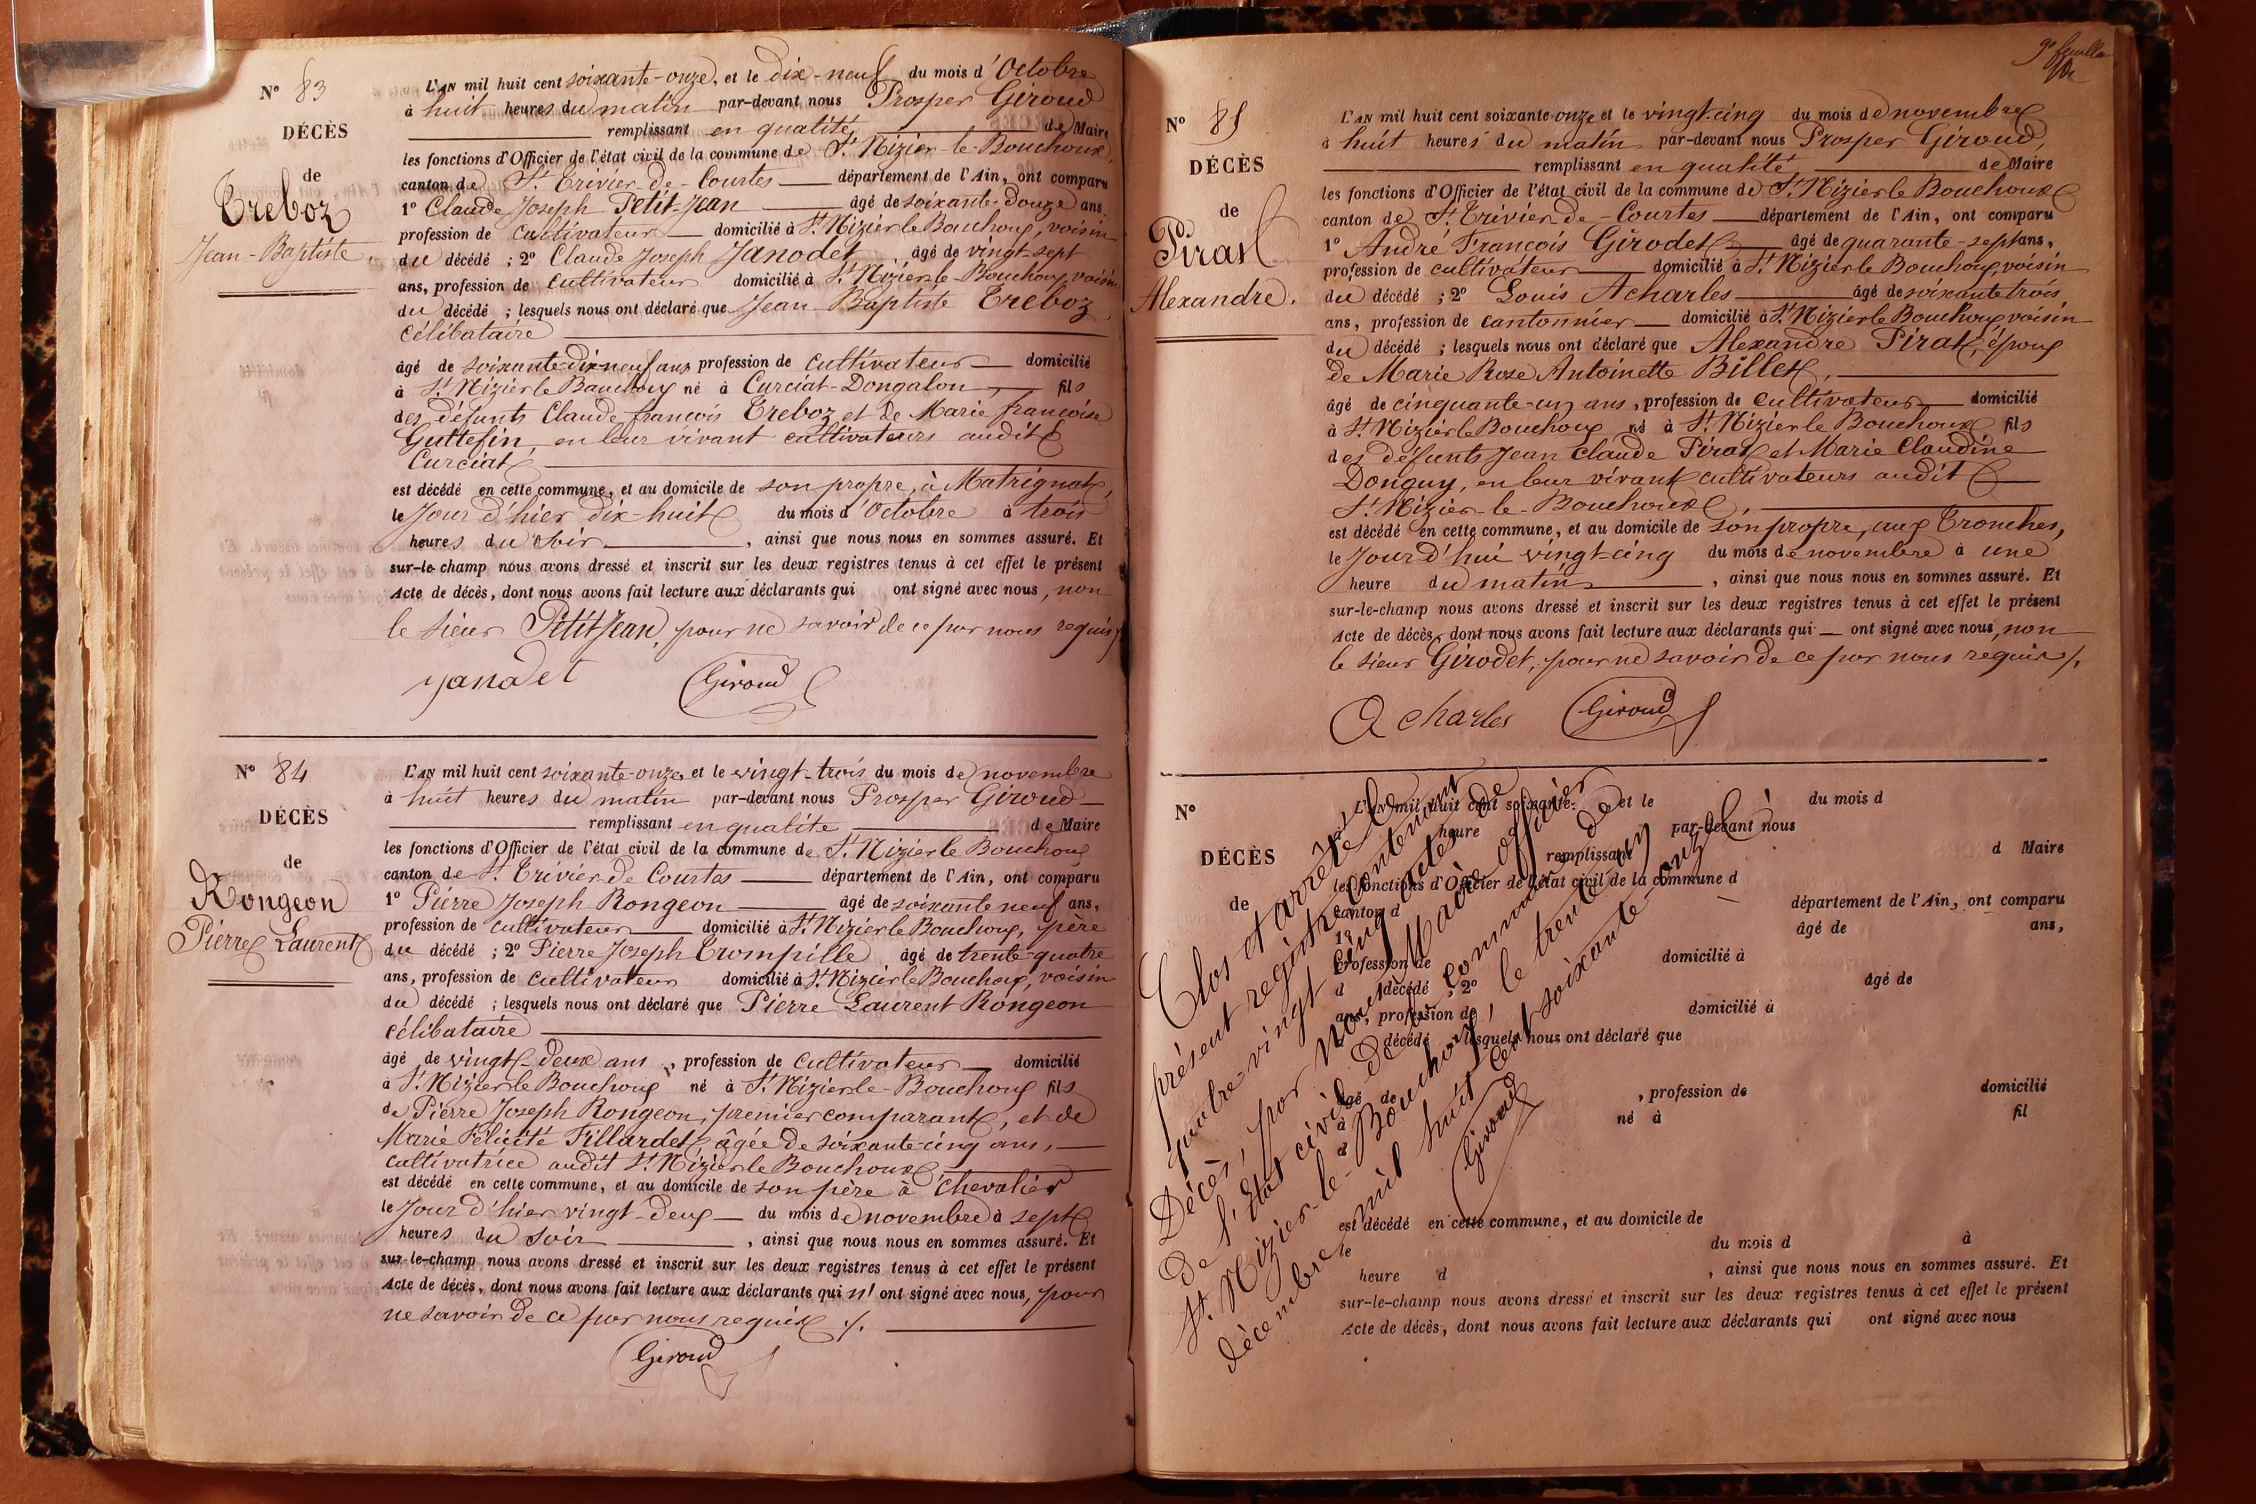 N° 83
DÉCÈS
de
Treboz
Jean-Baptiste.
L'AN mil huit cent soixante-onze, et le dix-neuf du mois d'Octobre
à huit heures du matin par-devant nous Prosper Giroud
remplissant en qualité de Maire
les fonctions d'Officier de l'état civil de la commune de St Nizier-le-Bouchoux,
canton de St Trivier-de-Courtes département de l'Ain, ont comparu
1° Claude Joseph Petit-Jean âgé de soixante-douze ans,
profession de cultivateur domicilié à St Nizier le Bouchoux, voisin
du décédé ; 2° Claude Joseph Janodet âgé de vingt-sept
ans, profession de cultivateur domicilié à St Nizier le Bouchoux, voisin
du décédé ; lesquels nous ont déclaré que Jean-Baptiste Treboz,
célibataire
âgé de soixante-dix-neuf ans profession de cultivateur domicilié
à St Nizier le Bouchoux né à Curciat-Dongalon, fils
des défunts Claude françois Treboz et de Marie françoise
Guttefin, en leur vivant cultivateurs audit
Curciat,
est décédé en cette commune, et au domicile de son propre, à Matrignat,
le Jour d'hier dix-huit du mois d'Octobre à trois
heures du soir, ainsi que nous nous en sommes assuré. Et
sur-le-champ nous avons dressé et inscrit sur les deux registres tenus à cet effet le présent
Acte de décès, dont nous avons fait lecture aux déclarants qui ont signé avec nous, non
le sieur Petit-Jean, pour ne savoir de ce par nous requis /.
yanodet Giroud
N° 84
DÉCÈS
de
Rongeon
Pierre Laurent
L'AN mil huit cent soixante-onze, et le vingt-trois du mois de novembre
à huit heures du matin par-devant nous Prosper Giroud
remplissant en qualité de Maire
les fonctions d'Officier de l'état civil de la commune de St Nizier le Bouchoux
canton de St Trivier de Courtes département de l'Ain, ont comparu
1° Pierre Joseph Rongeon âgé de soixante neuf ans,
profession de cultivateur domicilié à St Nizier le Bouchoux, père
du décédé ; 2° Pierre Joseph Trompille âgé de trente-quatre
ans, profession de cultivateur domicilié à St Nizier le Bouchoux, voisin
du décédé ; lesquels nous ont déclaré que Pierre Laurent Rongeon
célibataire
âgé de vingt-deux ans, profession de cultivateur domicilié
à St Nizier le Bouchoux né à St Nizier le-Bouchoux fils
de Pierre Joseph Rongeon, premier comparant, et de
Marie Félicité Pillardet, âgée de soixante-cinq ans,
cultivatrice audit St Nizier le Bouchoux,
est décédé en cette commune, et au domicile de son père à Chevalier
le Jour d'hier vingt-deux du mois de novembre à sept
heures du soir, ainsi que nous nous en sommes assuré. Et
sur-le-champ nous avons dressé et inscrit sur les deux registres tenus à cet effet le présent
Acte de décès, dont nous avons fait lecture aux déclarants qui n'ont signé avec nous, pour
ne savoir de ce par nous requis /.
Giroud
9e feuille
N° 85
DÉCÈS
de
Pirat
Alexandre.
L'AN mil huit cent soixante-onze et le vingt-cinq du mois de novembre
à huit heures du matin par-devant nous Prosper Giroud,
remplissant en qualité de Maire
les fonctions d'Officier de l'état civil de la commune de St Nizier le Bouchoux
canton de St Trivier de-Courtes département de l'Ain, ont comparu
1° André François Girodet âgé de quarante-sept ans,
profession de cultivateur domicilié à St Nizier le Bouchoux, voisin
du décédé ; 2° Louis Acharles âgé de soixante trois
ans, profession de cantonnier domicilié à St Nizier le Bouchoux, voisin
du décédé ; lesquels nous ont déclaré que Alexandre Pirat, époux
de Marie Rose Antoinette Billet,
âgé de cinquante-un ans, profession de cultivateur domicilié
à St Nizier le Bouchoux né à St Nizier le Bouchoux fils
des défunts Jean Claude Pirat et Marie Claudine
Donguy, en leur vivant cultivateurs audit
St Nizier-le-Bouchoux,
est décédé en cette commune, et au domicile de son propre, aux Tronches,
le Jour d'hui vingt-cinq du mois de novembre à une
heure du matin, ainsi que nous nous en sommes assuré. Et
sur-le-champ nous avons dressé et inscrit sur les deux registres tenus à cet effet le présent
Acte de décès, dont nous avons fait lecture aux déclarants qui ont signé avec nous, non
le sieur Girodet, pour ne savoir de ce par nous requis /.
Acharles Giroud
N°
DÉCÈS
de
L'AN mil huit cent soixante- et le du mois d
heure par-devant nous
remplissant d Maire
les fonctions d'Officier de l'état civil de la commune d
canton d département de l'Ain, ont comparu
1° âgé de ans,
profession de domicilié à
d décédé ; 2° âgé de
ans, profession de domicilié à
décédé lesquels nous ont déclaré que
âgé de , profession de domicilié
à né à fil
d
est décédé en cette commune, et au domicile de
le du mois d à
heure d , ainsi que nous nous en sommes assuré. Et
sur-le-champ nous avons dressé et inscrit sur les deux registres tenus à cet effet le présent
Acte de décès, dont nous avons fait lecture aux déclarants qui ont signé avec nous
Clos et arrêté le
présent registre contenant
quatre-vingt cinq actes de
Décès, par nous Maire officier
de l'état civil de la commune de
St Nizier-le-Bouchoux, le trente un
décembre mil huit cent soixante-onze
Giroud